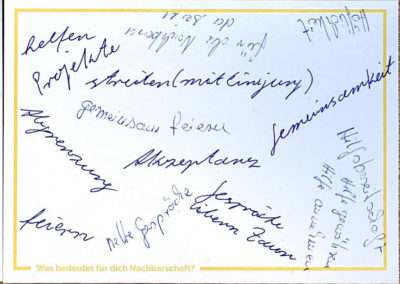 helfen
Projekte
für die Nachbarn
da sein
Höflichkeit
streiten (mit Injury)
gemeinsam feiern
Gemeinsamkeit
Abgrenzung
Akzeptanz
Hilfsbereitschaft
Hilfe
Hilfe annehmen
feiern
nette Gespräche
Gespräche
übern Zaun
Was bedeutet für dich Nachbarschaft?